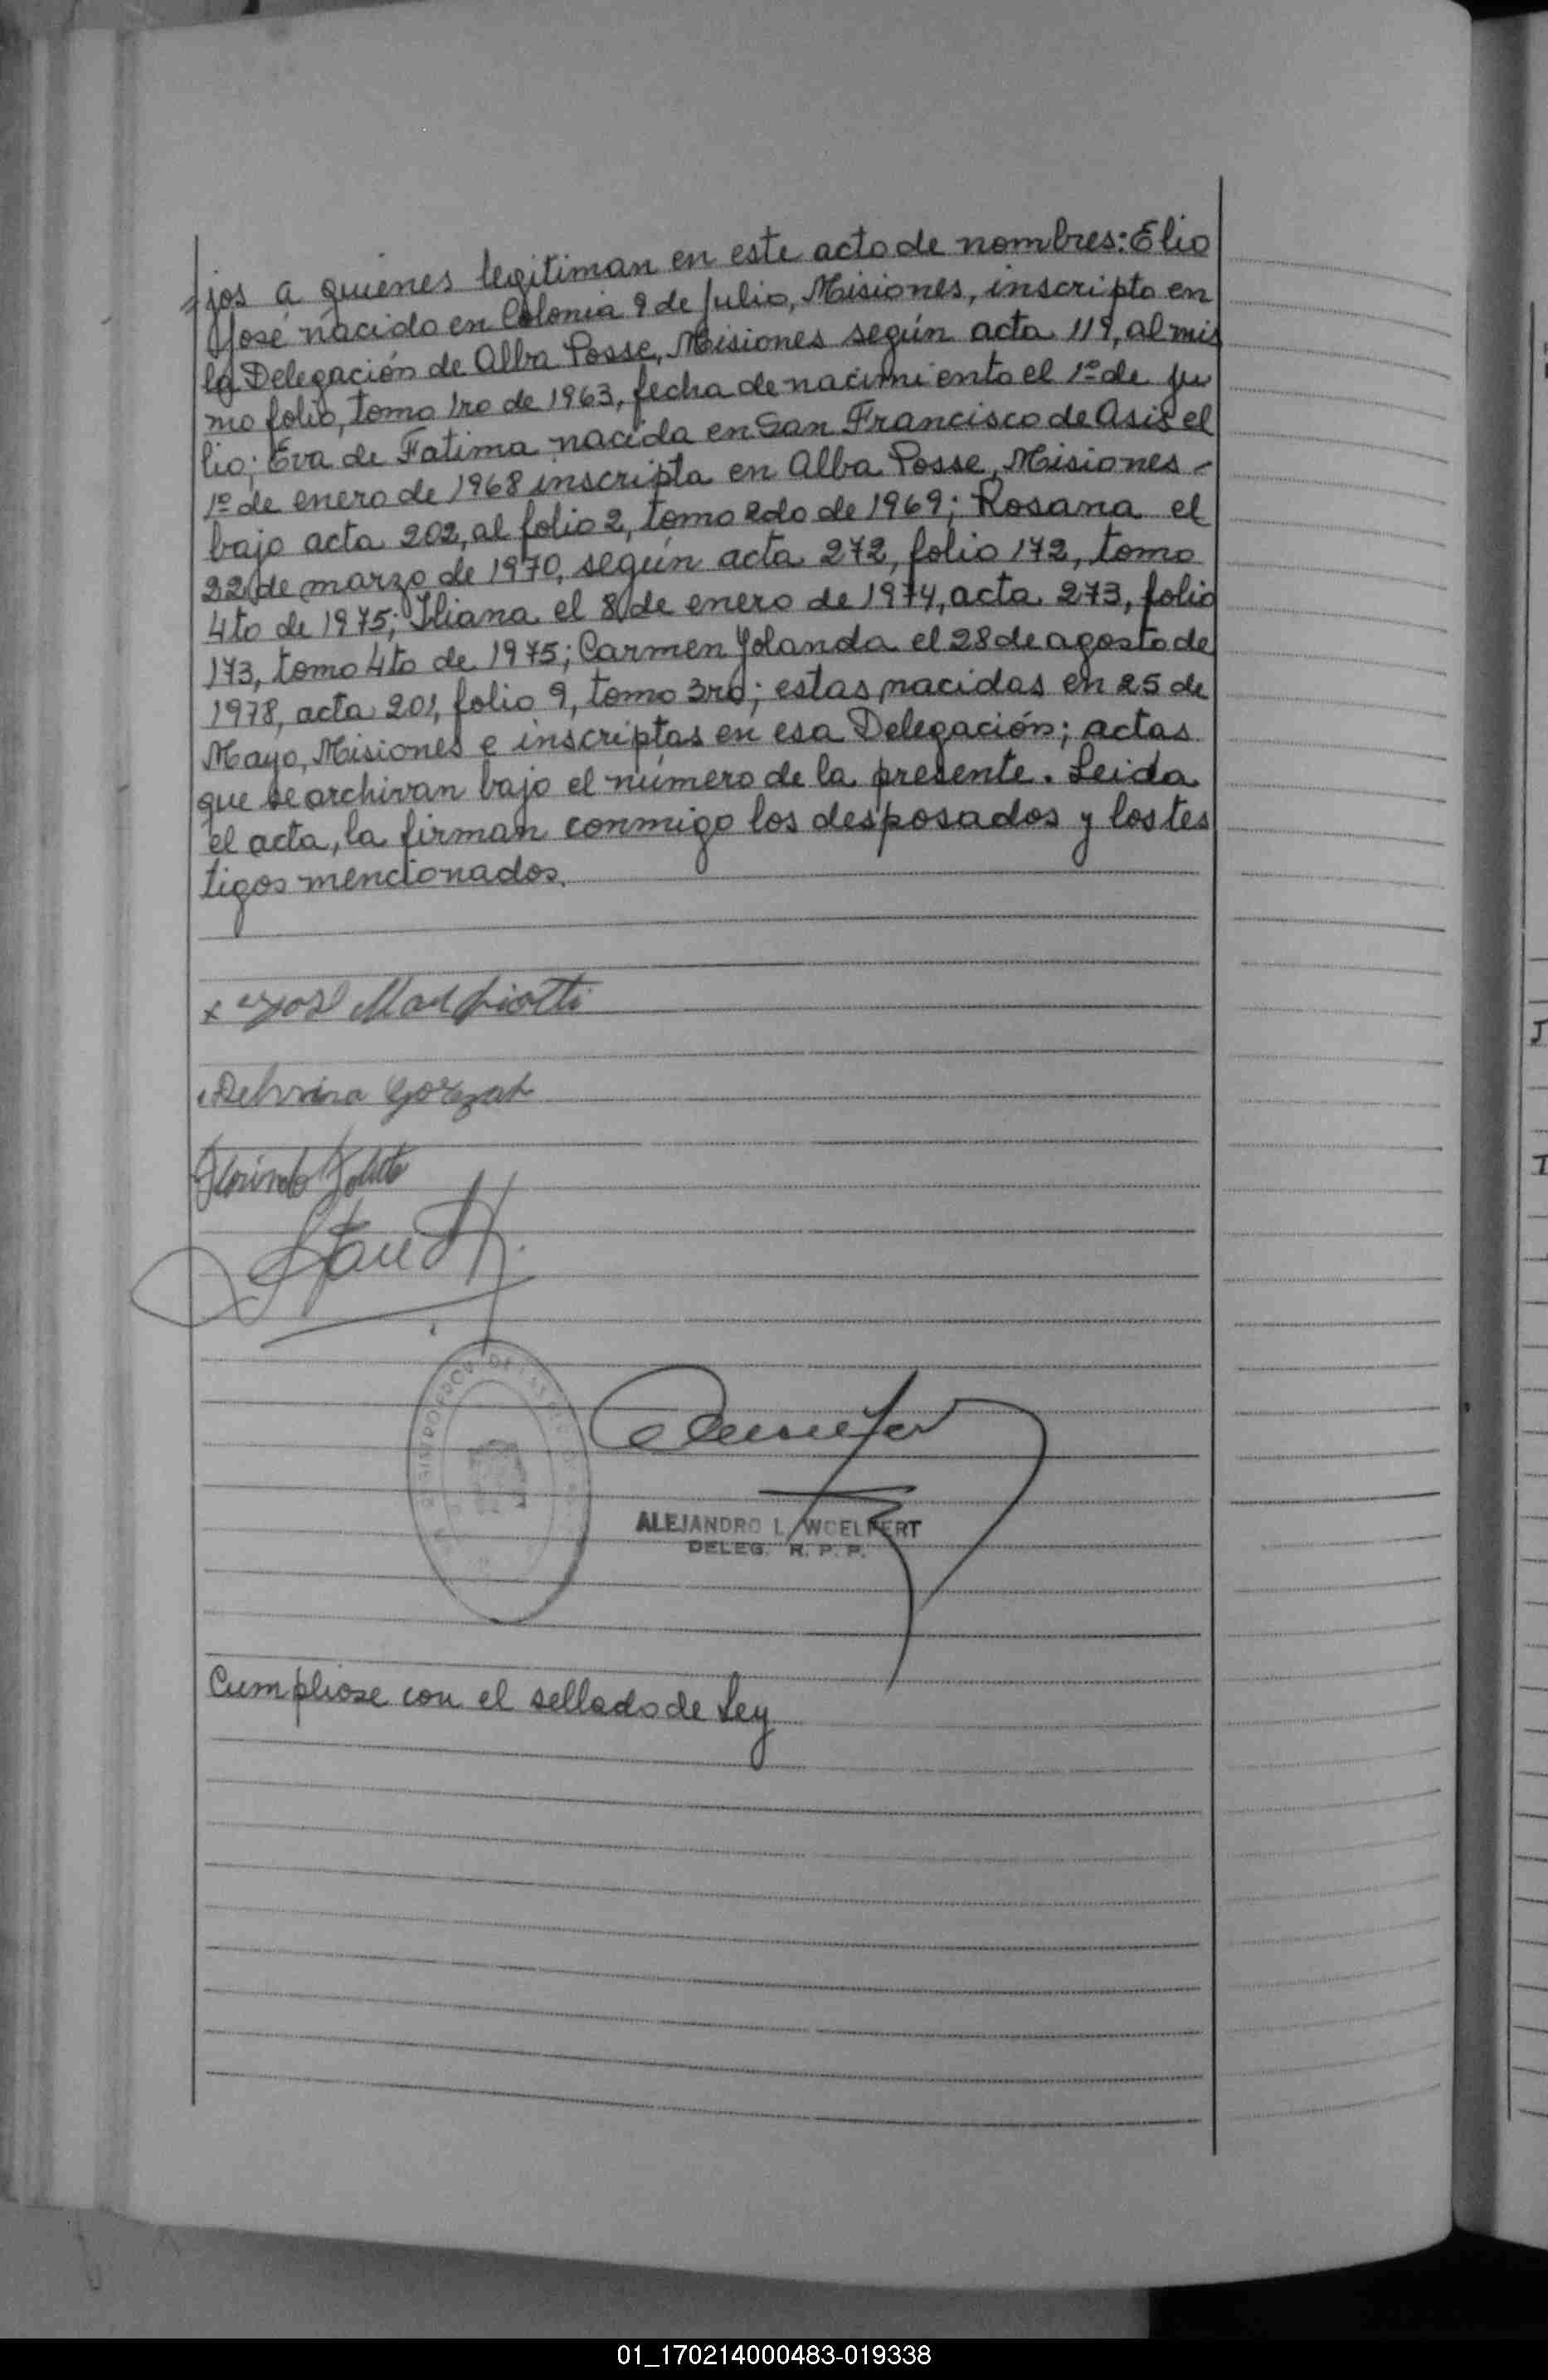 =jos a quienes legitiman en este acto de nombres: Elio
José nacido en Colonia 9 de Julio, Misiones, inscripto en
la Delegación de Alba Posse, Misiones según acta 119, al mis
mo folio, tomo 1ro de 1963, fecha de nacimiento el 1º de Ju
lio; Eva de Fatima nacida en San Francisco de Asis el
1º de enero de 1968 inscripta en Alba Posse, Misiones -
bajo acta 202, al folio 2, tomo 2do de 1969; Rosana el
22 de marzo de 1970, según acta 272, folio 172, tomo
4to de 1975; Iliana el 8 de enero de 1974, acta 273, folio
173, tomo 4to de 1975; Carmen Yolanda el 28 de agosto de
1978, acta 201, folio 9, tomo 3ro; estas nacidas en 25 de
Mayo, Misiones e inscriptas en esa Delegación; actas
que se archivan bajo el número de la presente. Leida
el acta, la firman conmigo los desposados y los tes
tigos mencionados.
x José
Florindo
ALEJANDRO L. WOELFERT
DELEG. R. P. P.
Cumpliose con el sellado de Ley
01_170214000483-019338